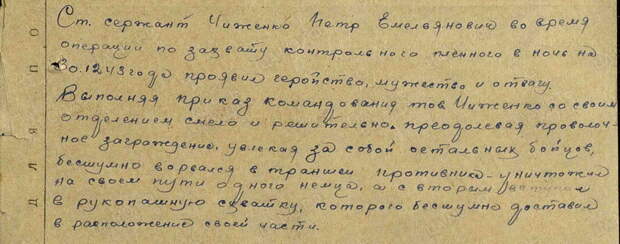 Ст. сержант Чиженко Петр Емельянович во время
операции по захвату контрольного пленного в ночь на
30.12.43 года проявил геройство, мужество и отвагу.
Выполняя приказ командования тов Чиженко со своим
отделением смело и решительно. преодолевая проволоч-
ное заграждение, увлекая за собой остальных бойцов,
бесшумно ворвался в траншеи противника - уничтожил
на своем пути одного немца, а с вторым вступил
в рукопашную схватку, которого бесшумно доставил
в расположение своей части.
для по